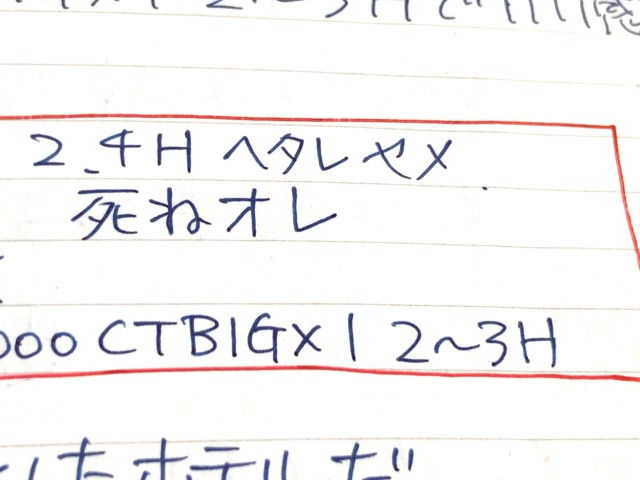 2.4H ヘタレヤメ
死ねオレ
000 CTBIG×1 2~3H
したホテルだ